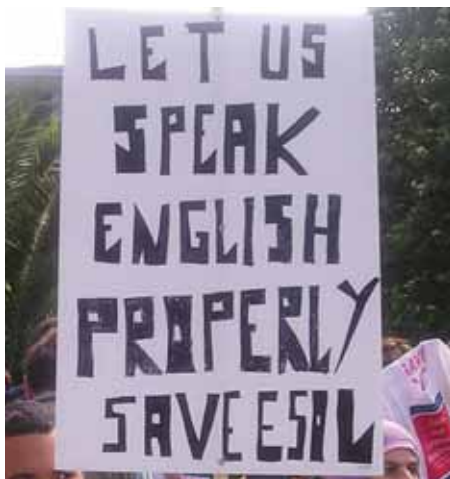 LET US
SPEAK
ENGLISH
PROPERLY
SAVE ESOL